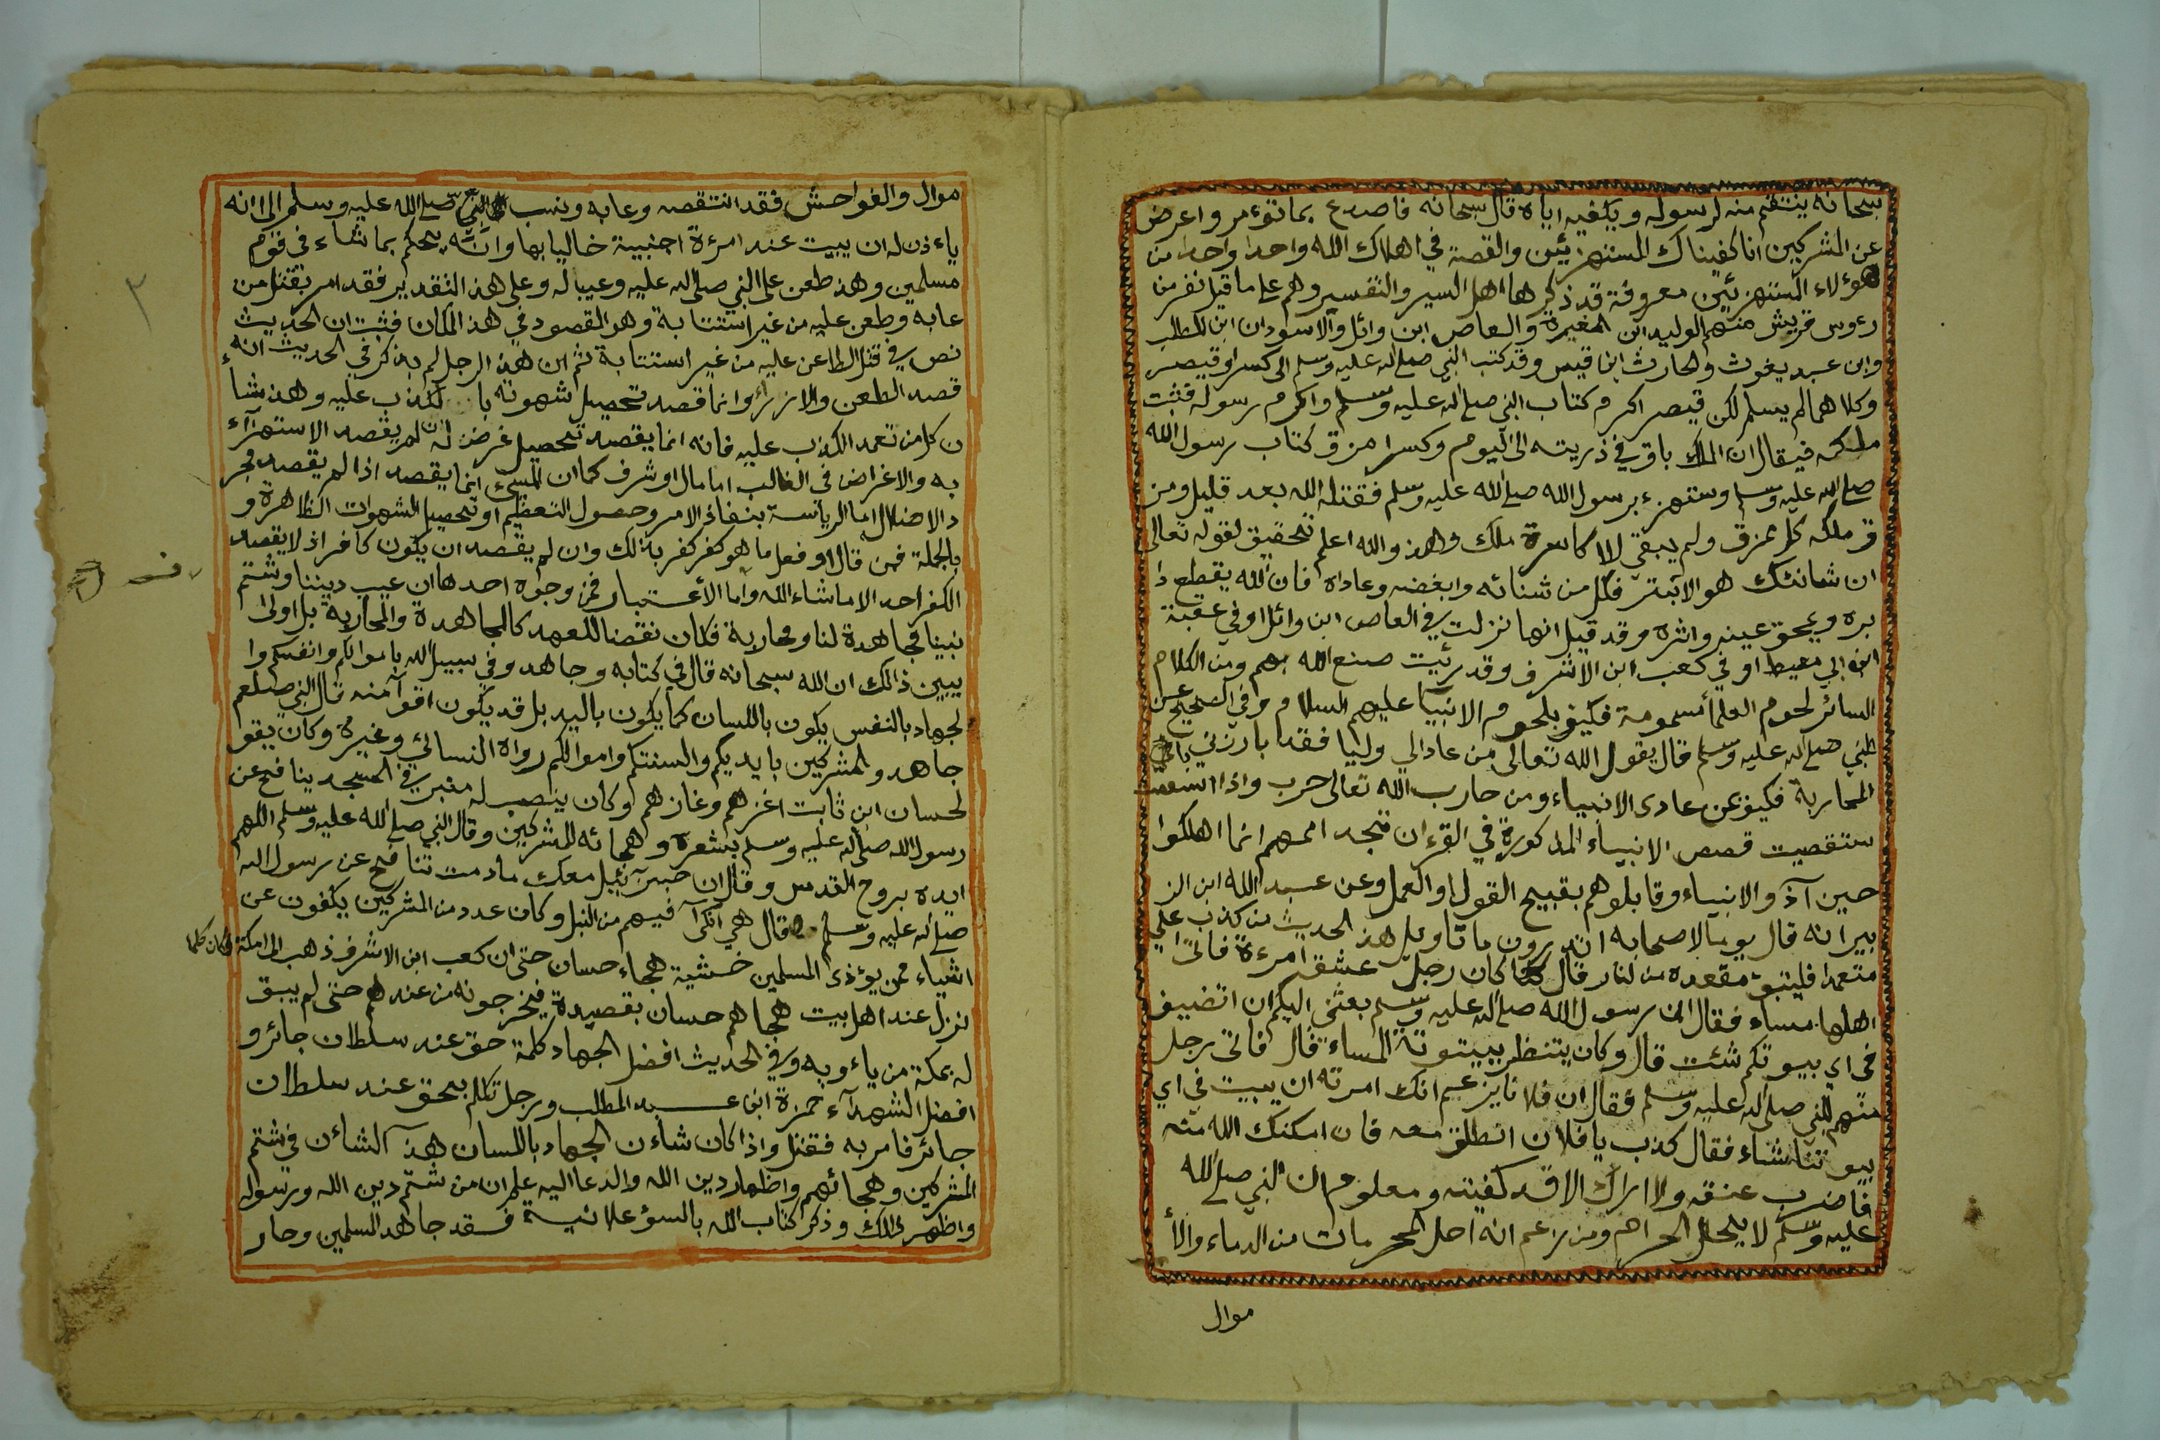 سبحانه ينتقم منه لرسوله ويكفيه اياه قال سبحانه فاصدع بما تؤمر واعرض
عن المشركين انا كفيناك المستهزئين والقصة في اهلاك الله واحدا واحدا من
هؤلاء المستهزئين معروفة قد ذكرها اهل السير والتفسير وهم على ما قيل نفر من
رءوس قريش منهم الوليد ابن المغيرة والعاص ابن وائل والاسودان ابن المطلب
وابن عبد يغوث والحارث ابن قيس وقد كتب النبي صلى الله عليه وسلم الى كسرا وقيصر
وكلاهما لم يسلم لكن قيصر اكرم كتاب النبي صلى الله عليه وسلم واكرم رسوله فثبت
ملكه فيقال ان الملك باق في ذريته الى اليوم وكسرا مزق كتاب رسول الله
صلى الله عليه وسلم وستهزء برسول الله صلى الله عليه وسلم فقتله الله بعد قليل ومز
ق ملكه كل ممزق ولم يبقى للاكاسرة ملك وهذ والله اعلم تحقيق لقوله تعالى
ان شانئك هو الابتر فكل من شنائه وابغضه وعاداه فان الله يقطع دا
بره ويمحق عينه واثره وقد قيل انها نزلت في العاص ابن وائل او في عقبة
ابن ابي معيط او في كعب ابن الاشرف وقد رئيت صنع الله بهم ومن الكلام
السائر لحوم العلما مسمومة فكيف بلحوم الانبيا عليهم السلام وفي الصحيح عن
النبي صلى الله عليه وسلم قال يقول الله تعالى من عادا لي وليا فقد بارزني
المحاربة فكيف عن عادى الانبياء ومن حارب الله تعالى حرب واذا
ستقصيت قصص الانبياء المذكورة في القرءان تجد اممهم انما اهلكوا
حين آذ والانبياء وقابلوهم بقبيح القول او العمل وعن عبد الله ابن الز
بير انه قال يوما لاصحابه اتدرون ما تاويل هذ الحديث من كذب علي
متعمدا فليتبؤ مقعده من لنار قال كان رجل عشق امرءة فاتى
اهلها مساء فقال اني رسول الله صلى الله عليه وسلم بعثني اليكم ان اتضيف
في اي بيوتكم شئت قال وكان يتنظر بيتوتة المساء قال فاتى رجل
منهم النبي صلى الله عليه وسلم فقال ان فلانا يزعم انك امرته ان يبيت في اي
بيوتنا شاء فقال كذب يا فلان انطلق معه فان امكنك الله منه
فاضرب عنقه ولا اراك الا قد كفيته ومعلوم ان النبي صلى الله
عليه وسلم لا يحلل الحرام ومن زاعم انه احل المحرمات من الدماء والأ
موال
موال والفواحش فقد انتقصه وعابه ونسب النبي صلى الله عليه وسلم الى انه
ياءذن له ان يبيت عند امرءة اجنبية خاليا بها وانه يحكم بما شاء في قوم
مسلمين وهذ طعن على النبي صلى الله عليه وعيبا له وعلى هذ التقدير فقد امر بقتل من
عابه وطعن عليه من غير استتابة وهو المقصود في هذ المكان فثبت ان الحديث
نص في قتل الطاعن عليه من غير استتابة ثم ان هذ الرجل لم يذكر في الحديث انه
قصد الطعن والازراء وانما قصد تحصيل شهوته با لكذب عليه وهذ شأ
ن كل من تعمد الكذب عليه فانه انما يقصد تحصيل غرض له ان لم يقصد الاستهزآء
به والاغراض في الغالب اما مال او شرف كما ان المسئ انما يقصد اذا لم يقصد مجر
د الاضلال اما الرياسة بنفاذ الامر وحصول التعظيم او تحصيل الشهوات الظاهرة و
بالجملة فمن قال او فعل ما هو كفر كفر بذالك وان لم يقصد ان يكون كافرا اذ لا يقصد
الكفر احد الا ما شاء الله واما الأعتبار فمن وجوه احدها ان عيب ديننا وشتم
نبينا مجاهدة لنا ومحاربة فكان نقضا للعهد كالمجاهدة والمحاربة بل اولى
يبين ذالك ان الله سبحانه قال في كتابه وجاهدو في سبيل الله باموالكم وانفسكم وا
لجهاد بالنفس يكون باللسان كما يكون باليد بل قد يكون اقوآ منه قال النبي صلعم
جاهدو المشركين بايديكم والسنتكم واموالكم رواه النسائي وغيره وكان يقو
ل حسان ابن ثابت اغزهم وغازهم وكان ينصب له منبر في المسجد ينافح عن
رسول الله صلى الله عليه وسلم بشعره وهجائه للمشركين وقال النبي صلى الله عليه وسلم اللهم
ايده بروح القدس وقال ان جبرئيل معك مادمت تنافح عن رسول الله
صلى الله عليه وسلم وقال هي انكآ فيهم من النبل وكان عدد من المشركين يكفون عن
اشياء ممن يؤذى المسلمين خشية هجاء حسان حتى ان كعب ابن الاشرف ذهب الى امكة فكان كلما
نزل عند اهل بيت هجاهم حسان بقصيدة فيخرجونه من عندهم حتى لم يبق
له بمكة من ياءويه وفي الحديث افضل الجهاد كلمة حق عند سلطان جائر و
افضل الشهدآء حمزة ابن عبد المطلب ورجل تكلم بحق عند سلطان
جائر فامر به فقتل واذا كان شاءن الجهاد باللسان هذ آلشاءن في شتم
المشركين وهجائهم واظهار دين الله والدعا اليه علم ان من شتم دين الله ورسوله
واظهر ذالك وذكر كتاب الله بالسؤ علانية فقد جاهد المسلمين وحار
٣